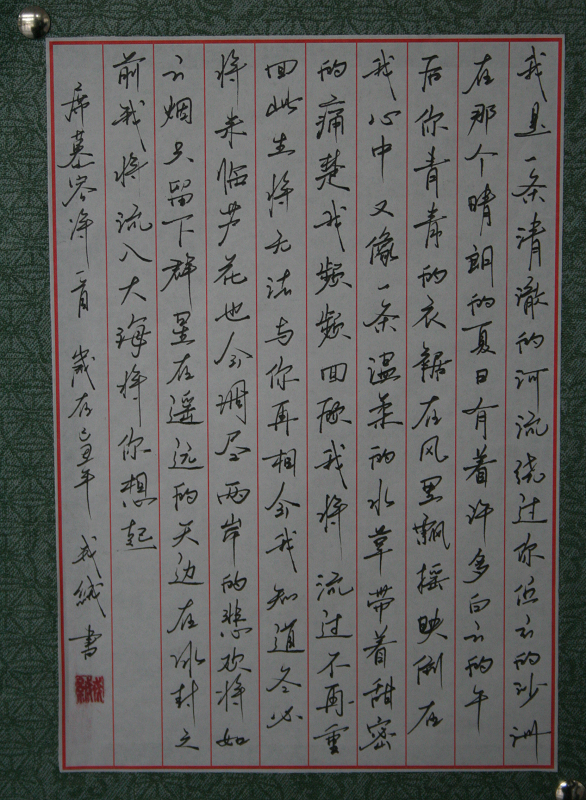 我是一条清澈的河流绕过你伫立的沙洲
在那个晴朗的夏日有着许多白云的午
后你青青的衣裾在风里飘摇映倒在
我心中又像一条温柔的水草带着甜密
的痛楚我频频回顾我将流过不再重
回此生将无法与你再相会我知道冬必
将来临芦花也会凋尽两岸的悲欢将如
云烟只留下群星在遥远的天边在冰封之
前我将流入大海将你想起
席慕容诗一首 岁在己丑年 书